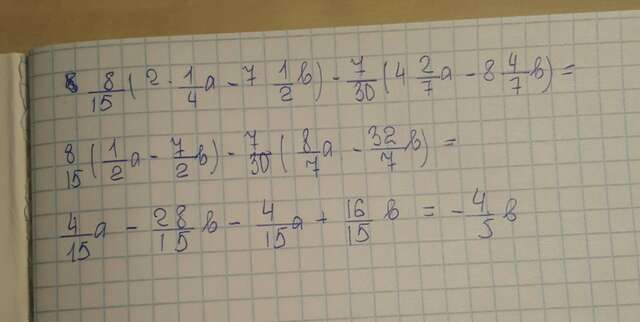 8/15(2·1/4a - 7 1/2b) - 7/30(4 2/7a - 8 4/7b) =
8/15(1/2a - 7/2b) - 7/30(8/7a - 32/7b) =
4/15a - 28/15b - 4/15a + 16/15b = -4/5b